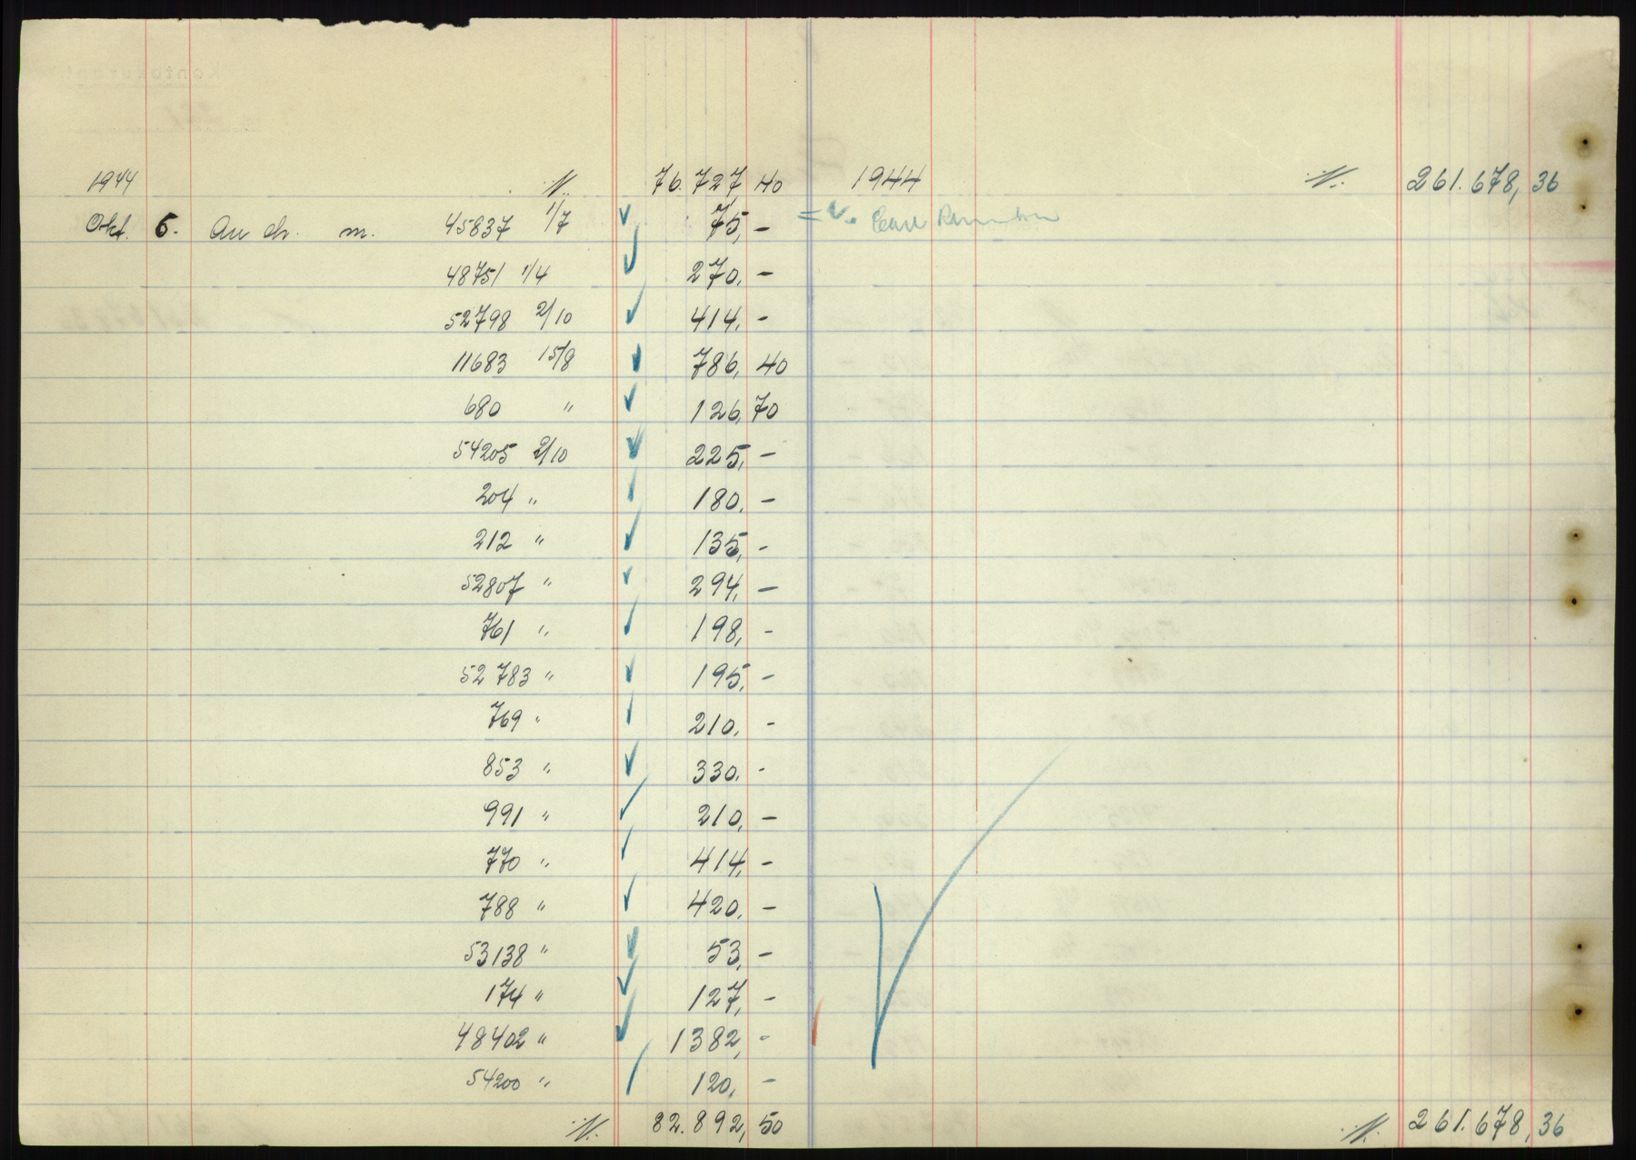 1944 ·/. 76.727,40 1944 ·/. 261.678,36
Okt. 6. An dr. m. 45837 1/7 75,-
48751 1/4 270,-
52798 2/10 414,-
11683 15/8 786,40
680 " 126,70
54205 2/10 225,-
204 " 180,-
212 " 135,-
52807 " 294,-
761 " 198,-
52783 " 195,-
769 " 210,-
853 " 330,-
991 " 210,-
770 " 414,-
788 " 420,-
53138 " 53,-
174 " 127,-
48402 " 1382,-
54200 " 120,-
·/. 82.892,50 ·/. 261.678,36